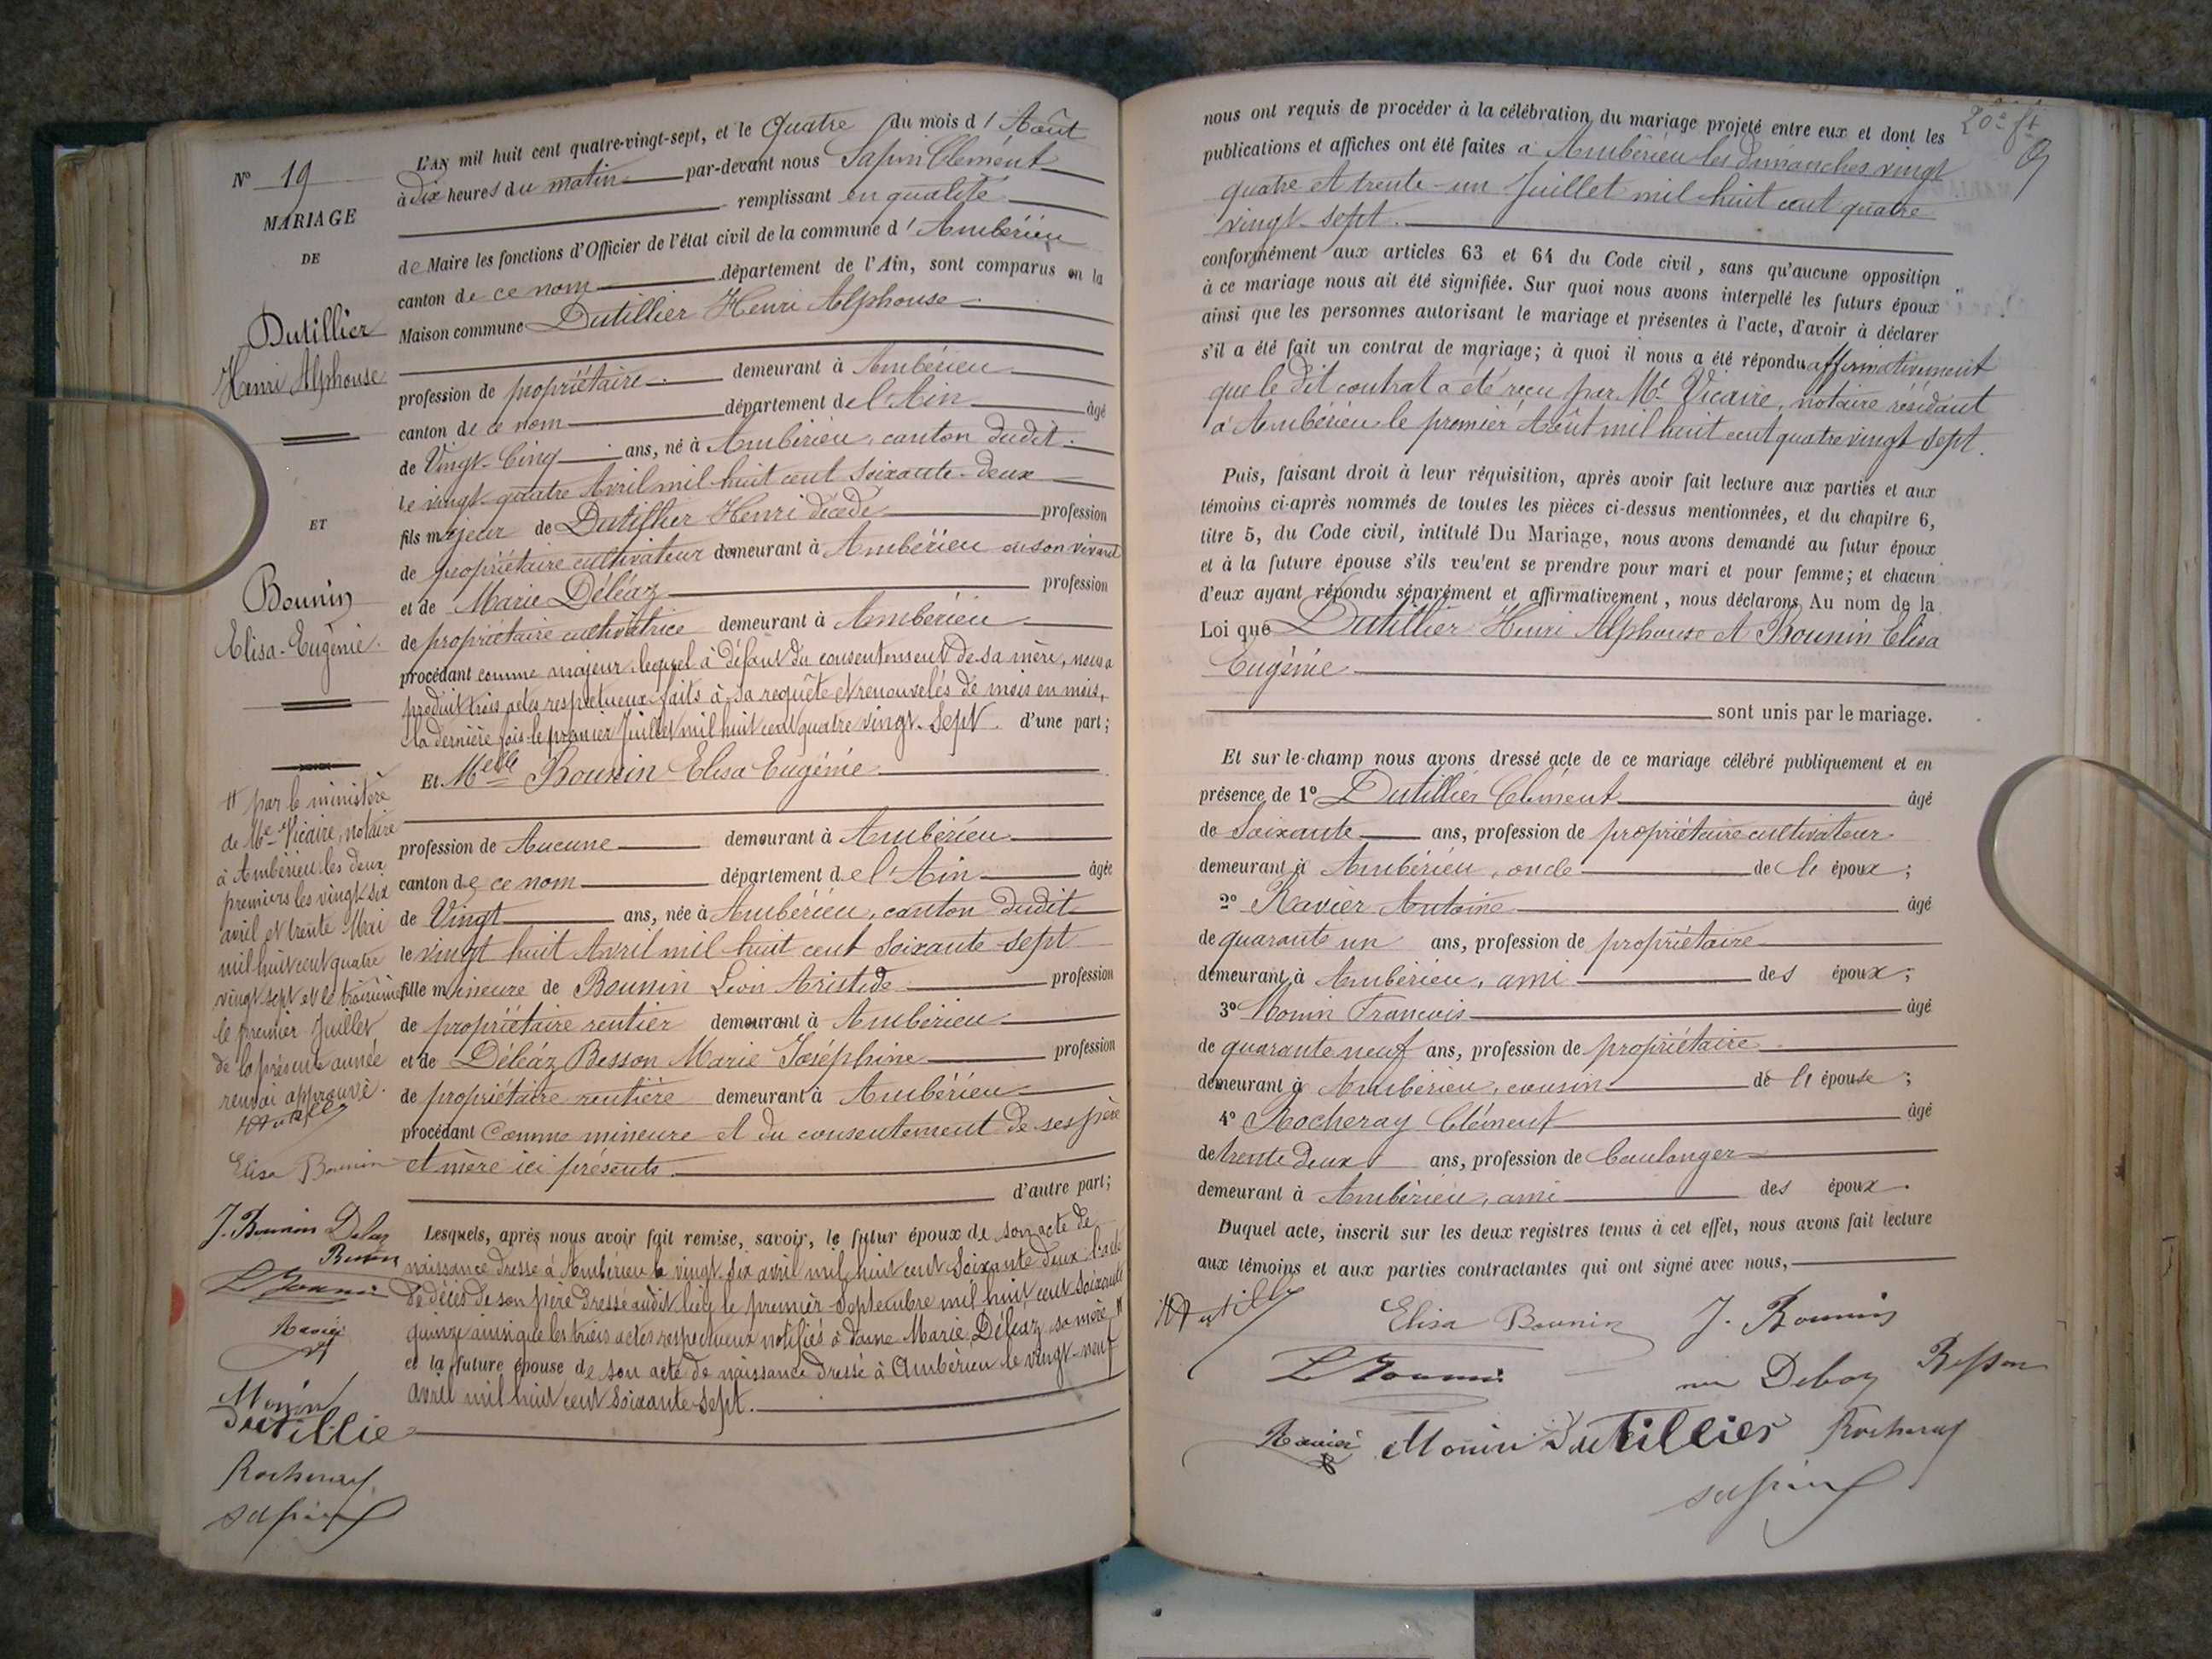 N° 19
MARIAGE
DE
Dutillier
Henri Alphonse
ET
Bounin
Elisa-Eugénie.
# par le ministère
de Me Vicaire, notaire
à Ambérieu les deux
premiers les vingt-six
avril et trente Mai
mil huit cent quatre
vingt sept et le troisième
le premier Juillet
de la présente année
renvoi approuvé.
HDutillier
Elisa Bounin
J. Bounin Delez
Besson
L Bounin
Ravier
Monin
Dutillie
Rocheray
Sapin
L'AN mil huit cent quatre-vingt-sept, et le Quatre du mois d'Août
à Dix heures du matin par-devant nous Sapin Clément
remplissant en qualité
de Maire les fonctions d'Officier de l'état civil de la commune d'Ambérieu
canton de ce nom département de l'Ain, sont comparus en la
Maison commune Dutillier Henri Alphonse
profession de propriétaire demeurant à Ambérieu
canton de ce nom département de l'Ain âgé
de Vingt-Cinq ans, né à Ambérieu, canton dudit
le vingt-quatre Avril mil huit cent soixante-deux
fils majeur de Dutillier Henri décédé profession
de propriétaire cultivateur demeurant à Ambérieu de son vivant
et de Marie Déléaz profession
de propriétaire cultivatrice demeurant à Ambérieu
procédant comme majeur, lequel à défaut du consentement de sa mère, nous a
produit trois actes respectueux faits à sa requête et renouvelés de mois en mois,
la dernière fois le premier Juillet mil huit cent quatre vingt-Sept. d'une part;
Et Melle Bounin Elisa Eugénie
profession de Aucune demeurant à Ambérieu
canton de ce nom département de l'Ain âgée
de Vingt ans, née à Ambérieu, canton dudit
le vingt huit Avril mil huit cent soixante-sept
fille mineure de Bounin Léon Aristide profession
de propriétaire rentier demeurant à Ambérieu
et de Déléaz Besson Marie Joséphine profession
de propriétaire rentière demeurant à Ambérieu
procédant comme mineure et du consentement de ses père
et mère ici présents
d'autre part;
Lesquels, après nous avoir fait remise, savoir, le futur époux de son acte de
naissance dressé à Ambérieu le vingt-six avril mil huit cent soixante deux l'acte
de décès de son père dressé audit lieu le premier Septembre mil huit cent soixante
quinze ainsi que les trois actes respectueux notifiés à dame Marie Déléaz sa mère #
et la future épouse de son acte de naissance dressé à Ambérieu le vingt-neuf
avril mil huit cent soixante-sept.
nous ont requis de procéder à la célébration du mariage projeté entre eux et dont les
publications et affiches ont été faites à Ambérieu les Dimanches vingt
quatre et trente-un Juillet mil huit cent quatre
vingt-sept.
conformément aux articles 63 et 64 du Code civil, sans qu'aucune opposition
à ce mariage nous ait été signifiée. Sur quoi nous avons interpellé les futurs époux
ainsi que les personnes autorisant le mariage et présentes à l'acte, d'avoir à déclarer
s'il a été fait un contrat de mariage; à quoi il nous a été répondu affirmativement
que le dit contrat a été reçu par Me Vicaire, notaire résidant
à Ambérieu le premier Août mil huit cent quatre vingt sept.
Puis, faisant droit à leur réquisition, après avoir fait lecture aux parties et aux
témoins ci-après nommés de toutes les pièces ci-dessus mentionnées, et du chapitre 6,
titre 5, du Code civil, intitulé Du Mariage, nous avons demandé au futur époux
et à la future épouse s'ils veulent se prendre pour mari et pour femme; et chacun
d'eux ayant répondu séparément et affirmativement, nous déclarons Au nom de la
Loi que Dutillier Henri Alphonse et Bounin Elisa
Eugénie
sont unis par le mariage.
Et sur-le-champ nous avons dressé acte de ce mariage célébré publiquement et en
présence de 1° Dutillier Clément âgé
de Soixante ans, profession de propriétaire cultivateur
demeurant à Ambérieu, oncle de l'époux;
2° Ravier Antoine âgé
de quarante un ans, profession de propriétaire
demeurant à Ambérieu, ami des époux;
3° Monin Francois âgé
de quarante neuf ans, profession de propriétaire
demeurant à Ambérieu, cousin de l'épouse;
4° Rocheray Clément âgé
de trente deux ans, profession de boulanger
demeurant à Ambérieu, ami des époux.
Duquel acte, inscrit sur les deux registres tenus à cet effet, nous avons fait lecture
aux témoins et aux parties contractantes qui ont signé avec nous,
HDutillier Elisa Bounin J. Bounin
L Bounin Besson
Ravier Monin Dutillier Rocheray
Sapin